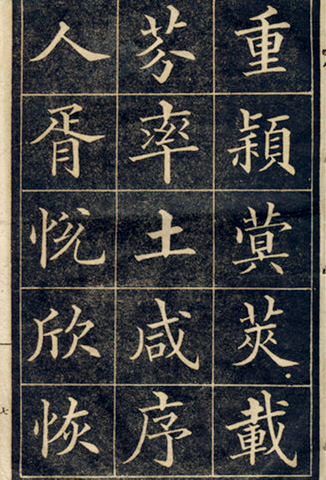 重穎蓂莢載
芬率土咸序
人胥悅欣恢